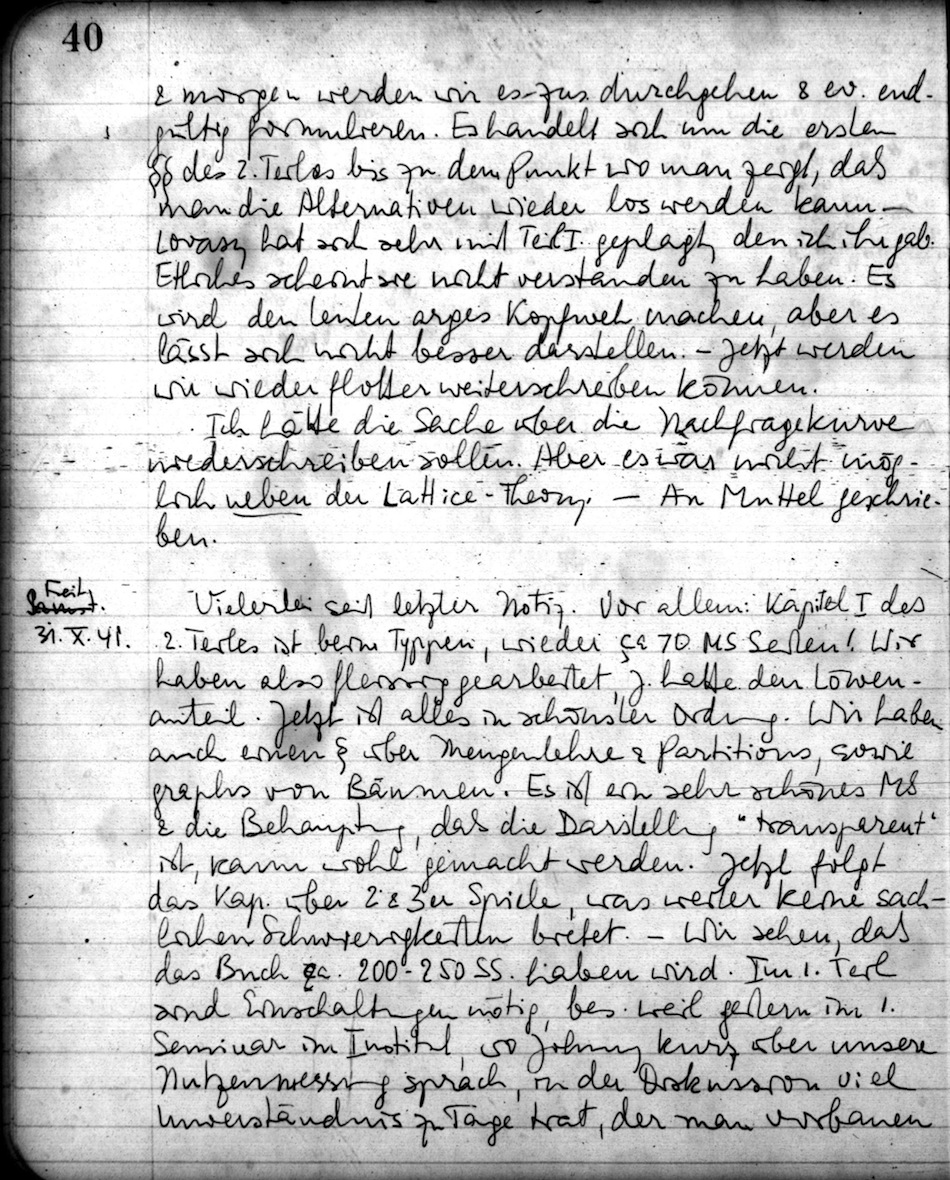 40
& morgen werden wir es zus. durchgehen & ev. end-
gültig formulieren. Es handelt sich um die ersten
§§ des 2. Teiles bis zu dem Punkt wo man zeigt, daß
man die Alternativen wieder los werden kann –
Lovasy hat sich sehr mit Teil I. geplagt, den ich ihr gab.
Etliches scheint sie nicht verstanden zu haben. Es
wird den Leuten arges Kopfweh machen, aber es
lässt sich nicht besser darstellen. – Jetzt werden
wir wieder flotter weiterschreiben können.
Ich hätte die Sache über die Nachfragekurve
niederschreiben sollen. Aber es war nicht mög-
lich neben der Lattice-Theory. – An Muttel geschrie-
ben.
Freitg
31. X. 41.
Vielerlei seit letzter Notiz. Vor allem: Kapitel I des
2. Teiles ist beim Typpen, wieder ca 70 MS Seiten! Wir
haben also fleissig gearbeitet, J. hatte den Löwen-
anteil. Jetzt ist alles in schönster Ordng. Wir haben
auch einen § über Mengenlehre & Partitions, sowie
graphs von Bäumen. Es ist ein sehr schönes MS
& die Behauptg, daß die Darstellg "transparent"
ist, kann wohl gemacht werden. Jetzt folgt
das Kap. über 2 & 3er Spiele, was weiter keine sach-
lichen Schwierigkeiten bietet. – Wir sehen, daß
das Buch ca. 200-250 SS. haben wird. Im 1. Teil
sind Einschaltungen nötig, bes. weil gestern im 1.
Seminar im Institut, wo Johnny kurz über unsere
Nutzenmessung sprach, in der Diskussion viel
Unverständnis zu Tage trat, der man vorbauen